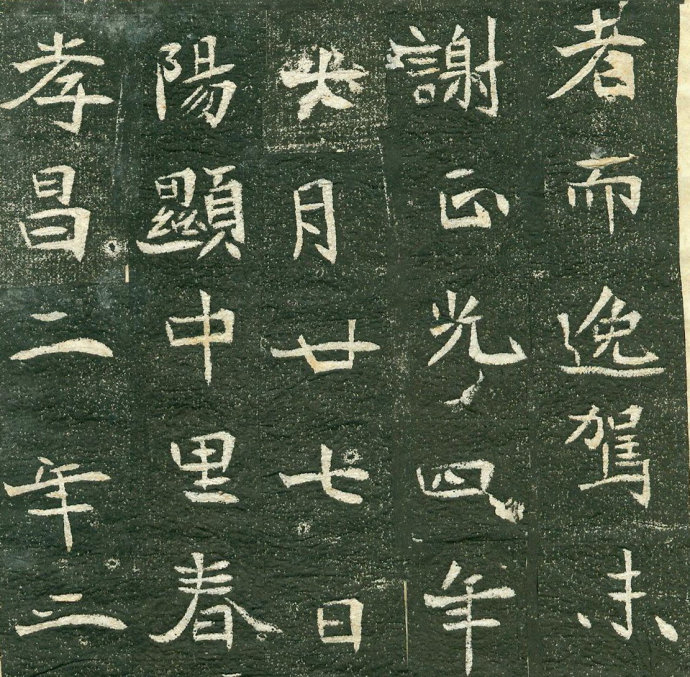 者而逸駕未
謝正光四年
月廿七日
陽顯中里春
孝昌二年三